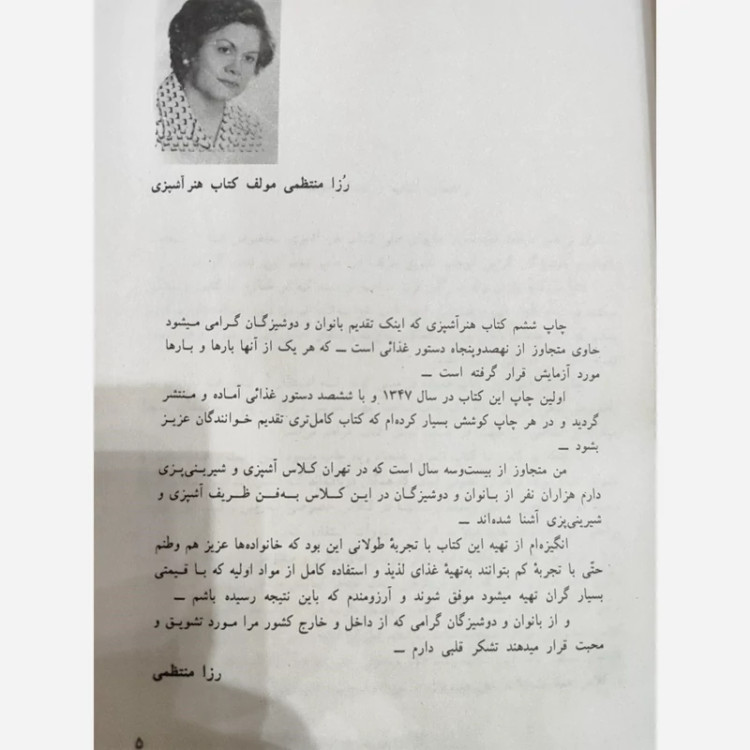 رُزا منتظمی مولف کتاب هنر آشپزی
چاپ ششم کتاب هنر آشپزی که اینک تقدیم بانوان و دوشیزگان گرامی میشود
حاوی متجاوز از نهصدوپنجاه دستور غذائی است — که هر یک از آنها بارها و بارها
مورد آزمایش قرار گرفته است —
اولین چاپ این کتاب در سال ۱۳۴۷ و با ششصد دستور غذائی آماده و منتشر
گردید و در هر چاپ کوشش بسیار کرده‌ام که کتاب کامل‌تری تقدیم خوانندگان عزیز
بشود —
من متجاوز از بیست‌وسه سال است که در تهران کلاس آشپزی و شیرینی‌پزی
دارم هزاران نفر از بانوان و دوشیزگان در این کلاس به‌فن ظریف آشپزی و
شیرینی‌پزی آشنا شده‌اند —
انگیزه‌ام از تهیه این کتاب با تجربهٔ طولانی این بود که خانواده‌ها عزیز هم وطنم
حتّی با تجربهٔ کم بتوانند به‌تهیهٔ غذای لذیذ و استفاده کامل از مواد اولیه که با قیمتی
بسیار گران تهیه میشود موفق شوند و آرزومندم که باین نتیجه رسیده باشم —
و از بانوان و دوشیزگان گرامی که از داخل و خارج کشور مرا مورد تشویق و
محبت قرار میدهند تشکر قلبی دارم —
رزا منتظمی
۵